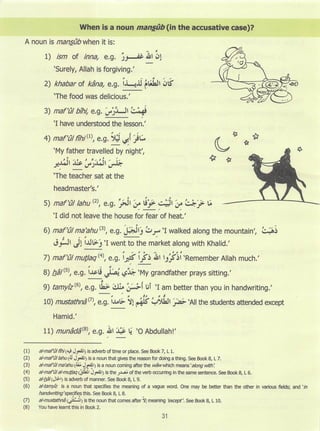 When is a noun mansûb (in the accusative case)?
A noun is mansûb when it is:
1) ism of inna, e.g. إنَّ اللهَ غفورٌ
'Surely, Allah is forgiving.'
2) khabar of kâna, e.g. كان الطعامُ لذيذًا
'The food was delicious.'
3) maf'ûl bihi, e.g. فهمتُ الدرسَ
'I have understood the lesson.'
4) maf'ûl fîhi (1), e.g. سافر أبي ليلاً
'My father travelled by night',
المدرسُ عندَ المديرِ
'The teacher sat at the
headmaster's.'
5) maf'ûl lahu (2), e.g. ما خرجتُ من البيتِ خوفًا من الحرِّ
'I did not leave the house for fear of heat.'
6) maf'ûl ma'ahu (3), e.g. سرتُ والجبلَ 'I walked along the mountain',
ذهبتُ إلى السوق وخالدًا 'I went to the market along with Khalid.'
7) maf'ûl mutlaq (4), e.g. اذكروا اللهَ ذكرًا كثيرًا 'Remember Allah much.'
8) hâl (5), e.g. جدي يصلي قاعدًا 'My grandfather prays sitting.'
9) tamyîz (6), e.g. أنا أحسنُ منك خطًّا 'I am better than you in handwriting.'
10) mustathnâ (7), e.g. حضر الطلابُ كلُّهم إلا حامدًا 'All the students attended except
Hamid.'
11) munâdâ (8), e.g. يا عبدَ اللهِ 'O Abdullah!'
(1) al-maf'ûl fîhi (المفعول فيه) is adverb of time or place. See Book 7, L 1.
(2) al-maf'ûl lahu (المفعول له) is a noun that gives the reason for doing a thing. See Book 8, L 7.
(3) al-maf'ûl ma'ahu (المفعول معه) is a noun coming after the wâw which means 'along with.'
(4) al-maf'ûl al-mutlaq (المفعول المطلق) is the مصدر of the verb occurring in the same sentence. See Book 8, L 6.
(5) al-hâl (الحال) is adverb of manner. See Book 8, L 9.
(6) al-tamyîz is a noun that specifies the meaning of a vague word. One may be better than the other in various fields; and 'in
handwriting' specifies this. See Book 8, L 8.
(7) al-mustathnâ (المستثنى) is the noun that comes after إلا meaning 'except'. See Book 8, L 10.
(8) You have learnt this in Book 2.
31